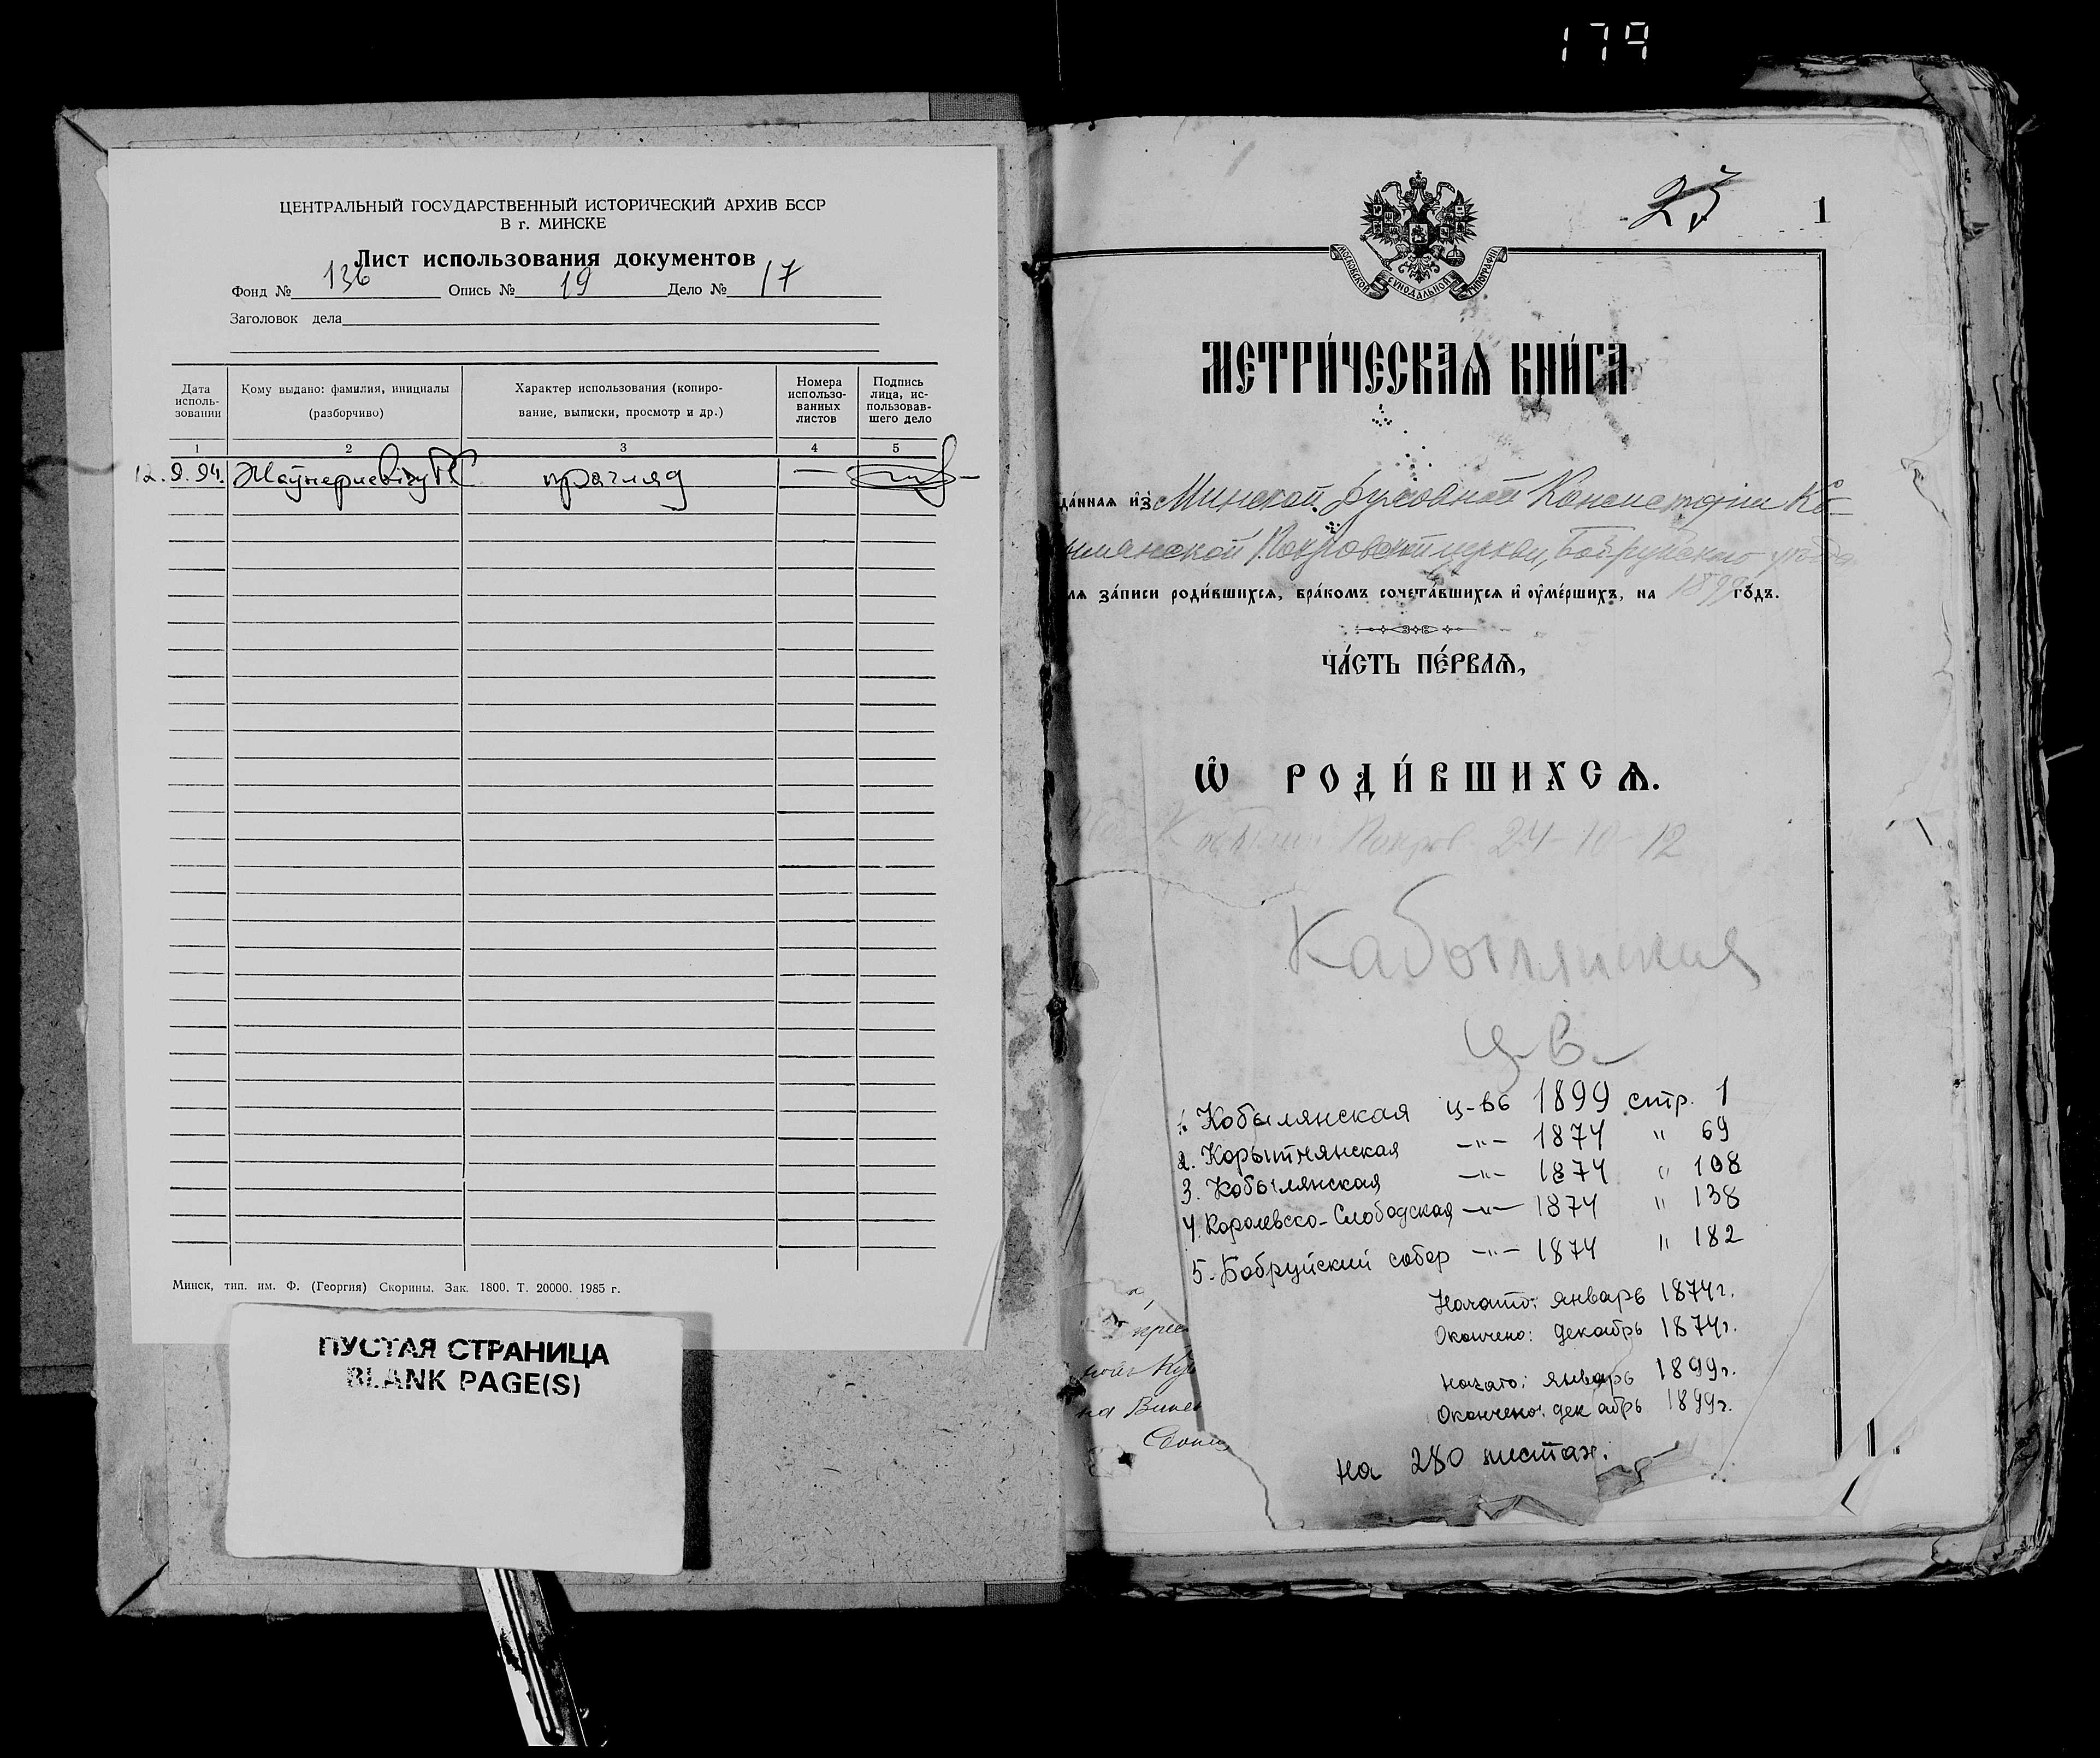 179
ЦЕНТРАЛЬНЫЙ ГОСУДАРСТВЕННЫЙ ИСТОРИЧЕСКИЙ АРХИВ БССР
В г. МИНСКЕ
Лист использования документов
Фонд № 136 Опись № 19 Дело № 17
Заголовок дела
Дата исполь-
зовании
Кому выдано: фамилия, инициалы
(разборчиво)
Характер использования (копиро-
вание, выписки, просмотр и др.)
Номера
использо-
ванных
листов
Подпись
лица, ис-
пользовав-
шего дело
1 2 3 4 5
12.9.94. прагляд —
Минск, тип. им. Ф. (Георгия) Скорины. Зак. 1800. Т. 20000. 1985 г.
ПУСТАЯ СТРАНИЦА
BLANK PAGE(S)
25
1
МОСКОВСКОЙ СѴНОДАЛЬНОЙ ТИПОГРАФІИ
МЕТРИ́ЧЕСКАѦ КНИ́ГА
да́нная из̾ Минской Духовной Консисторіи Ко-
Покровской церкви, Бобруйскаго уѣзда
ля за́писи роди́вшихсѧ, бра́комъ сочета́вшихсѧ и҆ ᲂу҆ме́ршихъ, на 1899 го́дъ.
ЧА́СТЬ ПЕ́РВАѦ,
Ѡ҆ РОДИ́ВШИХСѦ.
Покров. 24-10-12
Кабылянския
Ц-В-
1. Кобылянская ц-вь 1899 стр. 1
2. Корытнянская —"— 1874 " 69
3. Кобылянская —"— 1874 " 108
4. Королевско-Слободская —"— 1874 " 138
5. Бобруйский собор —"— 1874 " 182
Начато: январь 1874 г.
Окончено: декабрь 1874 г.
Начато: январь 1899 г.
Окончено: декабрь 1899 г.
На 280 листах.